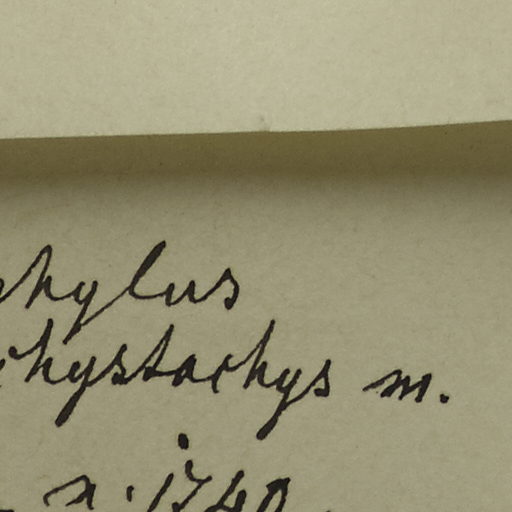 phylus
chystachys m.
n. 1740